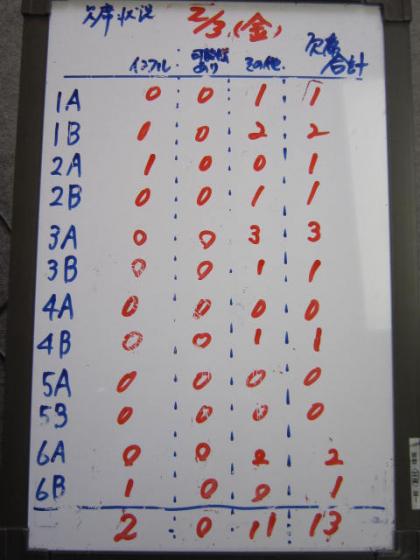 欠席状況 2/3(金)
インフル 可能性あり その他 欠席合計
1A 0 0 1 1
1B 1 0 2 2
2A 1 0 0 1
2B 0 0 1 1
3A 0 0 3 3
3B 0 0 1 1
4A 0 0 0 0
4B 0 0 1 1
5A 0 0 0 0
5B 0 0 0 0
6A 0 0 2 2
6B 1 0 0 1
2 0 11 13